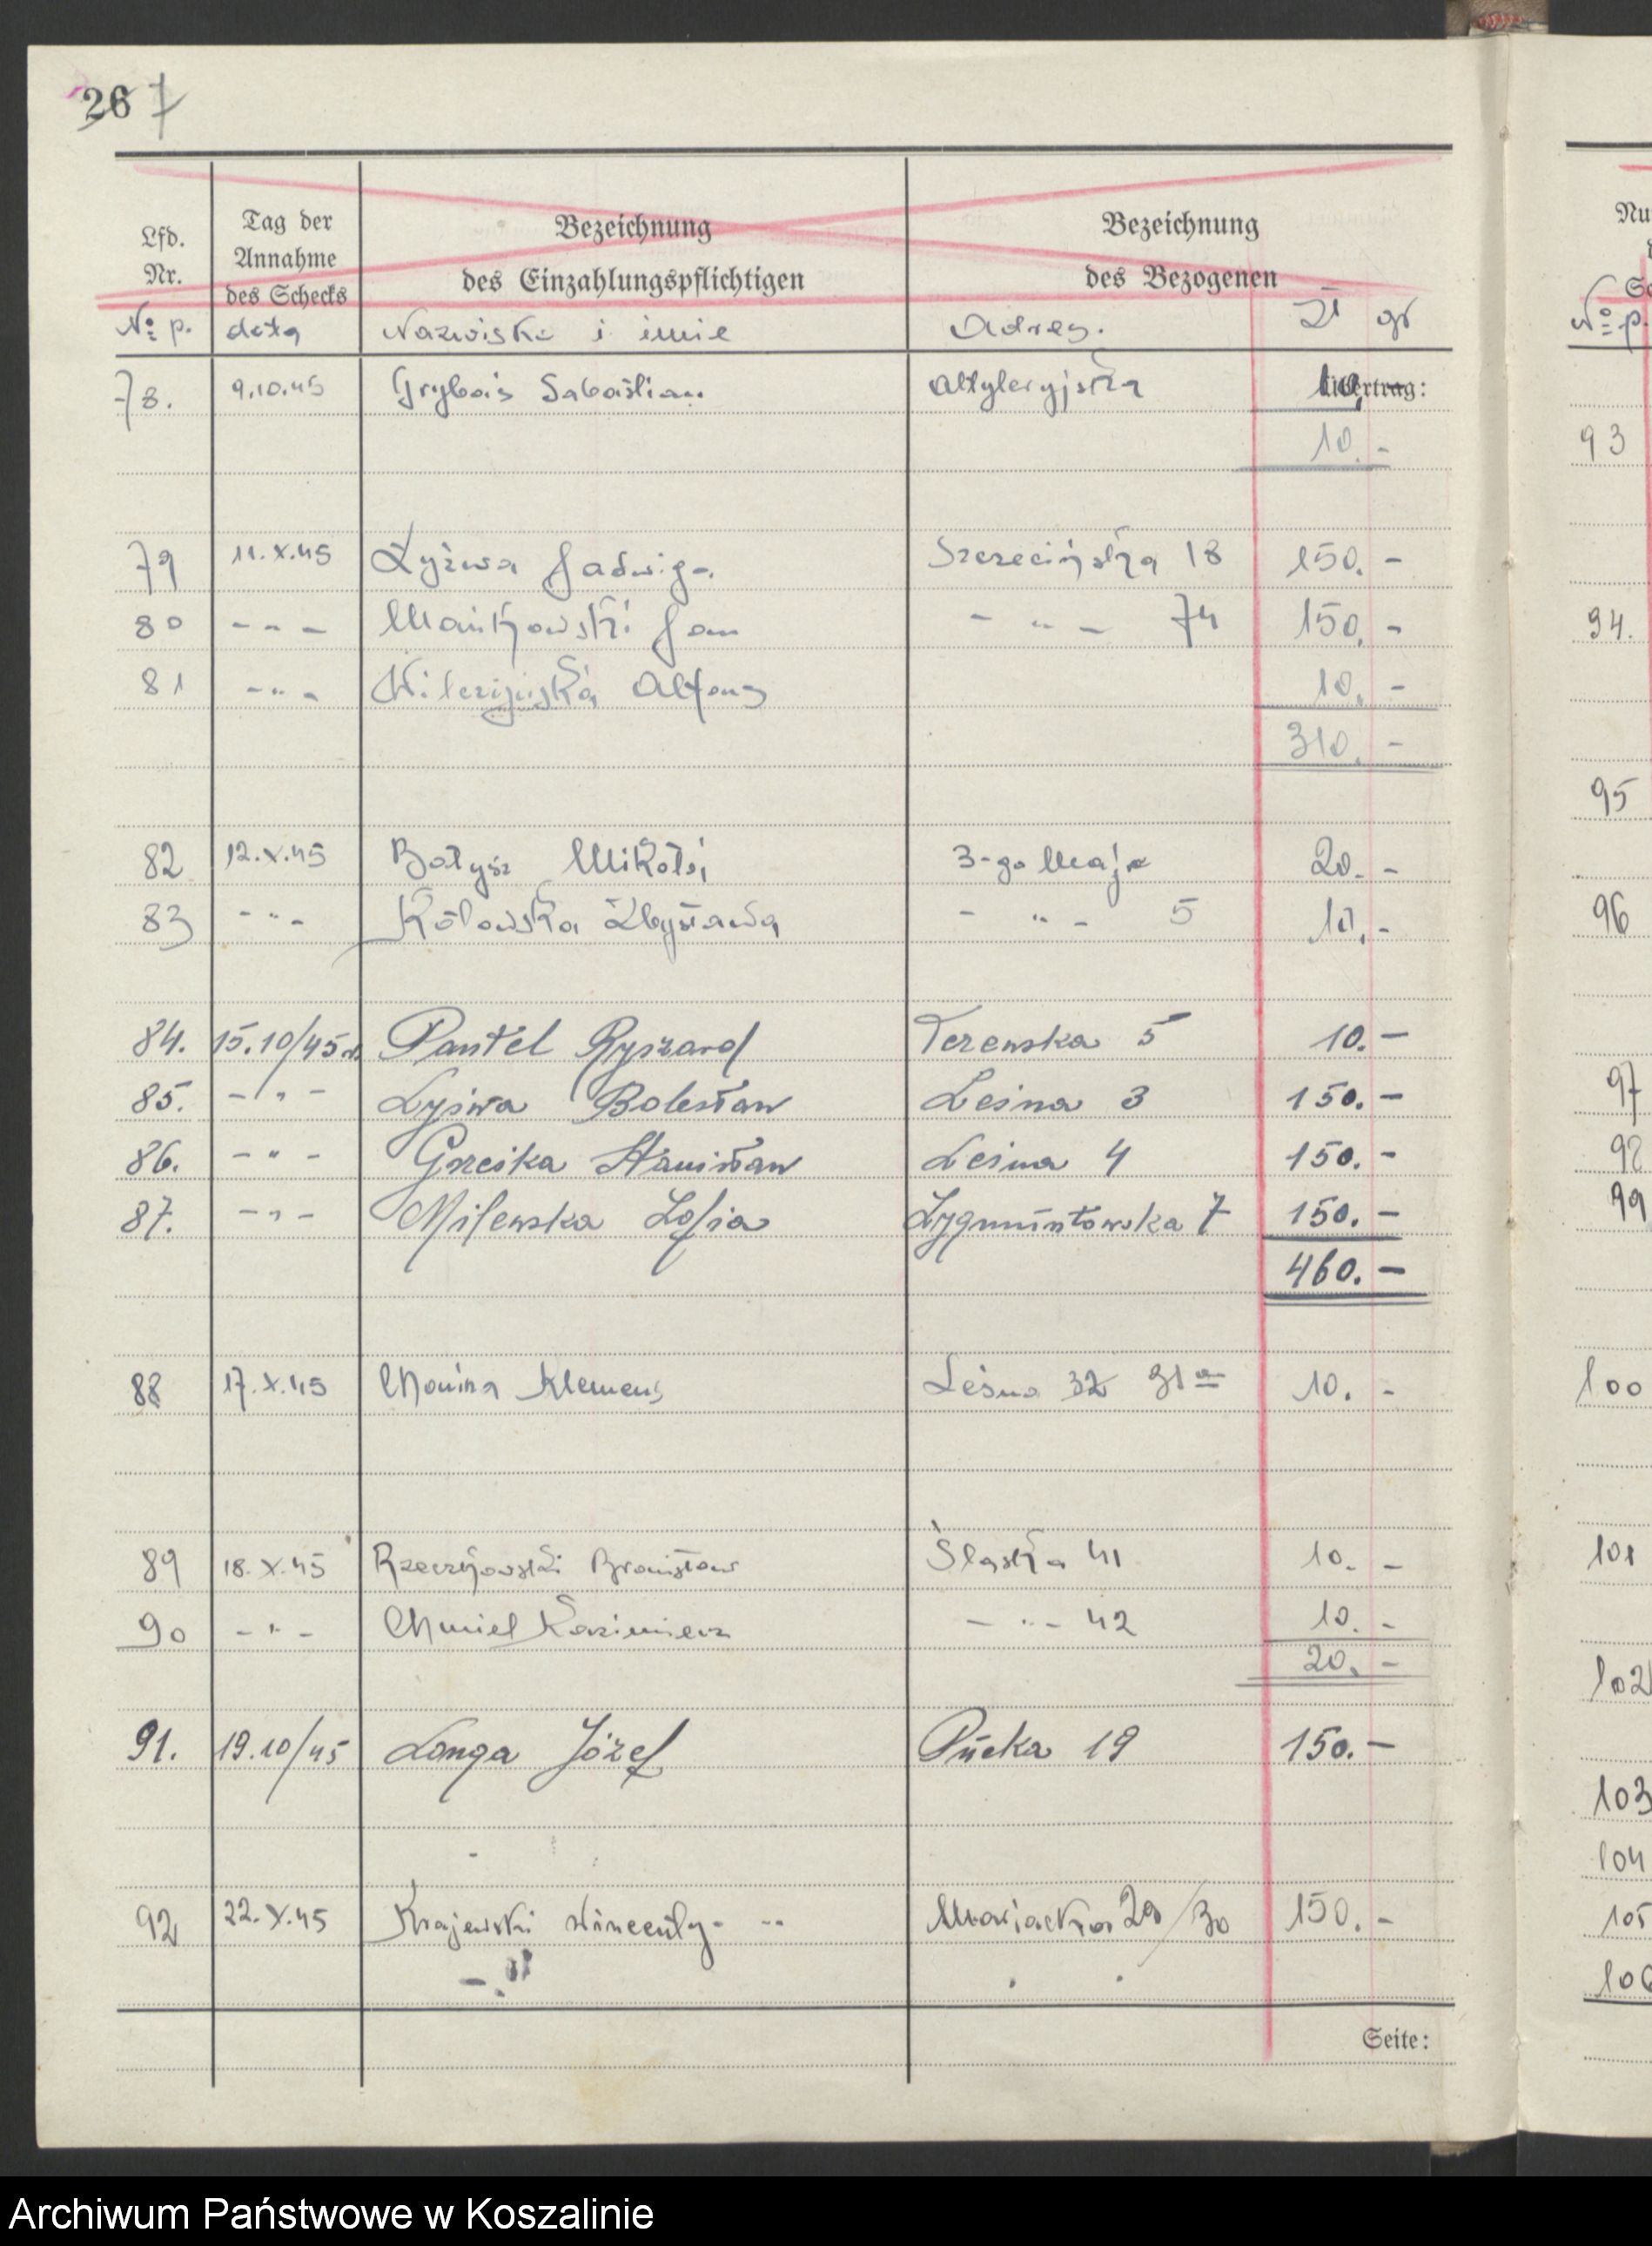 26 7
Lfd. Nr. Tag der Annahme des Schecks Bezeichnung des Einzahlungspflichtigen Bezeichnung des Bezogenen
№ p. data Nazwisko i imie Adres. Zł gr
78. 9.10.45 Gryboś Sabastian Artyleryjska 10, Übertrag:
10. - 93
79 11.X.45 Łyżwa Jadwiga Szczecińska 18 150. -
80 - - - Mańkowski Jan - " - 74 150. - 94.
81 - " - Alfons 10. -
310. -
95
82 12.X.45 Bołysz Mikołaj 3-go Maja 20. -
83 - " - Kołowska - " - 5 10. - 96
84. 15.10/45 Pantel Ryszard 5 10. -
85. - " - Łyżwa Bolesław Leśna 3 150. - 97
86. - " - Grześka Stanisław Leśna 4 150. - 98
87. - " - Milewska Zofia Zygmuntowska 7 150. - 99
460. -
88 17.X.45 Klemens Leśna 32 31a 10. - 100
89 18.X.45 Bronisław Śląska 41 10. - 101
90 - " - Chmiel Kazimierz - " - 42 10. -
20. - 102
91. 19.10/45 Langa Józef Pucka 19 150. -
103
104
92 22.X.45 Krajewski Wincenty Mariacka 29/30 150. - 105
106
Seite:
Archiwum Państwowe w Koszalinie